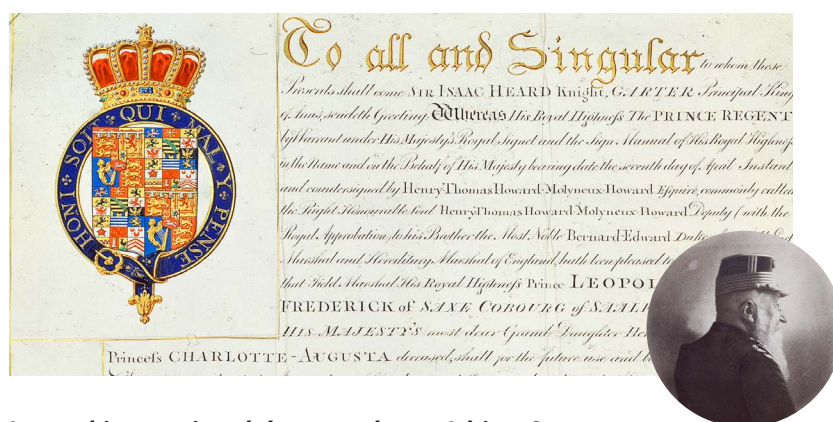 HONI SOIT QUI MAL Y PENSE
To all and Singular to whom these
Presents shall come SIR ISAAC HEARD Knight, GARTER Principal King
of Arms, sendeth Greeting. Whereas His Royal Highness The PRINCE REGENT
by Warrant under His Majesty's Royal Signet and the Sign Manual of His Royal Highness
in the Name and on the Behalf of His Majesty bearing date the seventh day of April Instant
and countersigned by Henry Thomas Howard-Molyneux-Howard Esquire, commonly called
the Right Honourable Lord Henry Thomas Howard-Molyneux-Howard Deputy (with the
Royal Approbation) to his Brother the Most Noble Bernard-Edward
Marshal and Hereditary Marshal of England, hath been pleased
that Field Marshal His Royal Highness Prince
FREDERICK of SAXE COBOURG of
HIS MAJESTY'S most dear Grand Daughter
Princess CHARLOTTE-AUGUSTA deceased, shall for the future use and